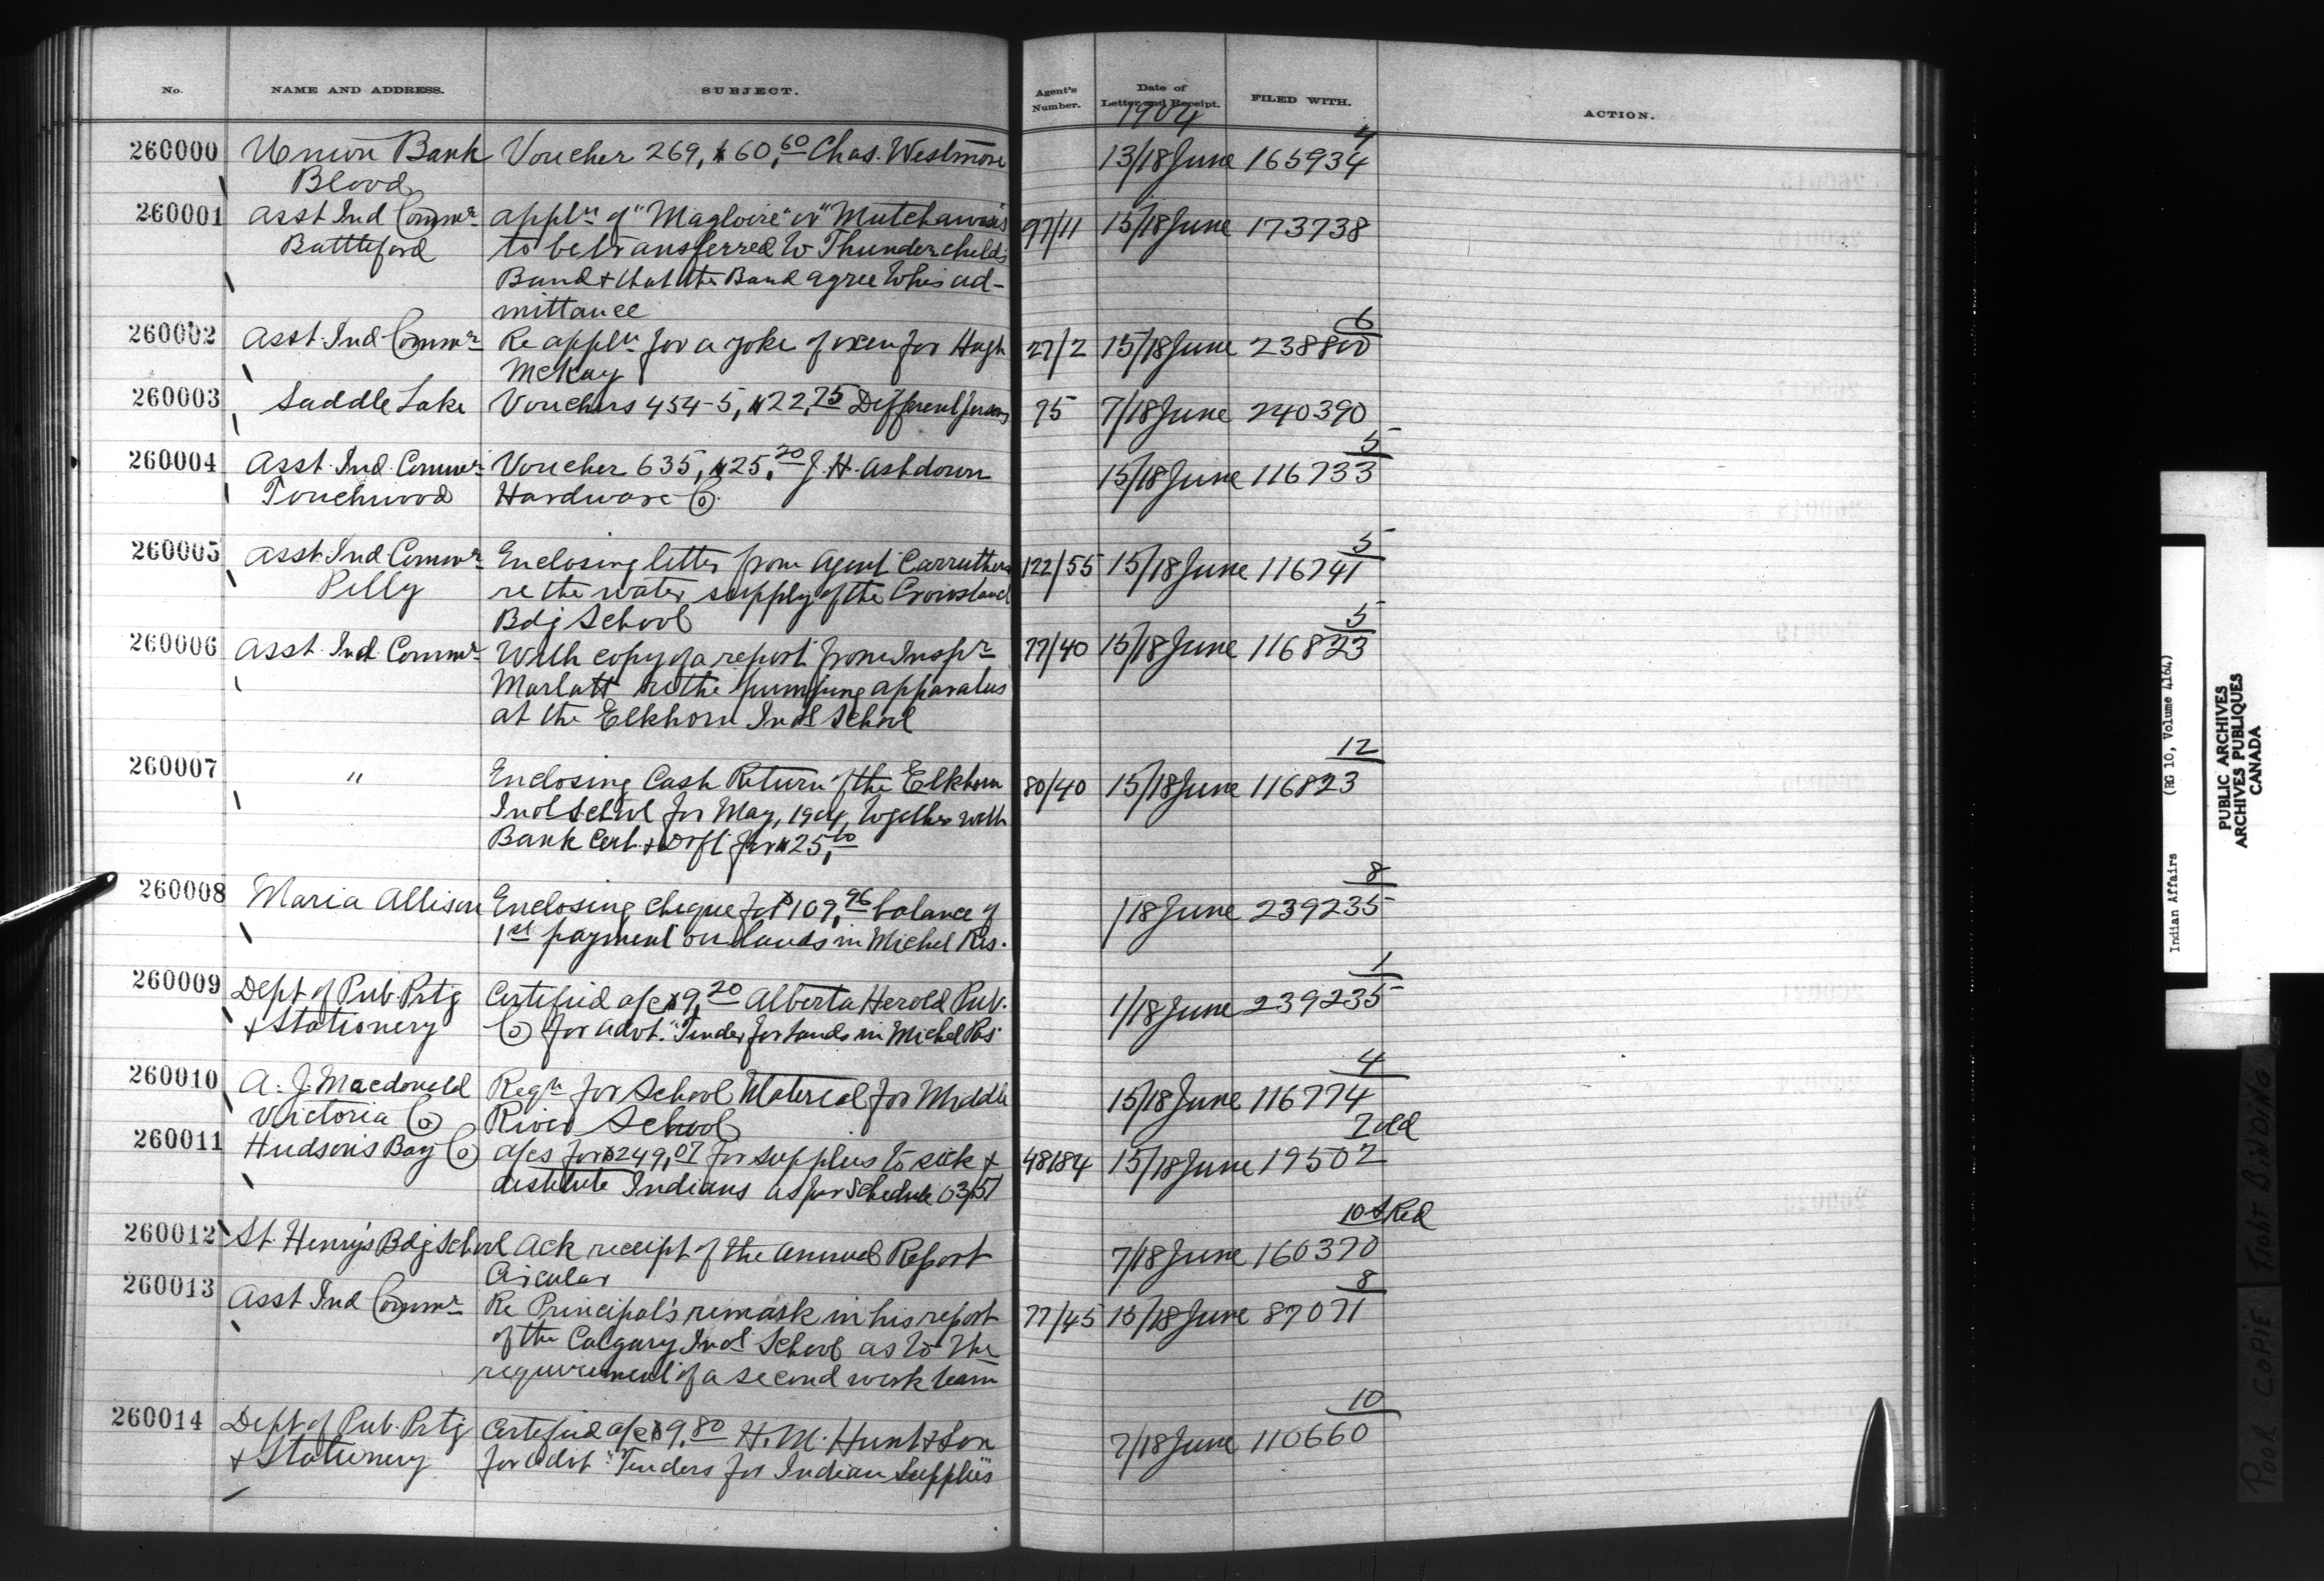 No. NAME AND ADDRESS. SUBJECT. Agent's Number. Date of Letter and Receipt. FILED WITH. ACTION.
1904
4
260000 Union Bank Voucher 269, $60,60 Chas. Westmore 13/18 June 165934
Blood
260001 Asst Ind Commr appln of "Magloire" or "Mutchawasis 97/11 15/18 June 173738
Battleford to be transferred to Thunderchild's
Band & that the Band agree to his ad-
mittance
6
260002 Asst Ind Commr Re appln for a yoke of oxen for Hugh 27/2 15/18 June 238800
McKay
260003 Saddle Lake Vouchers 454-5, $22,75 Different persons 95 7/18 June 240390
5
260004 Asst Ind Commr Voucher 635, $25,20 J. H. Ashdown 15/18 June 116733
Touchwood Hardware Co.
5
260005 Asst Ind Commr Enclosing letter from Agent Carruthers 122/55 15/18 June 116741
Pelly re the water supply of the Crowstand
Bdg School
5
260006 Asst Ind Commr With copy of a report from Inspr 77/40 15/18 June 116823
Marlatt re the pumping apparatus
at the Elkhorn Indl School
12
260007 " Enclosing Cash Return of the Elkhorn 80/40 15/18 June 116823
Indl School for May, 1904, together with
Bank Cert. & Drft for $25,00
8
260008 Maria Allison Enclosing cheque for $109,96 balance of 1/18 June 239235
1st payment on lands in Michel Res.
1
260009 Dept of Pub Prtg Certified a/c $9,20 Alberta Herold Pub. 1/18 June 239235
& Stationery Co for advt. "Tender for lands in Michel Res"
4
260010 A. J. Macdonald Reqn for School Material for Middle 15/18 June 116774
Victoria Co River School
7 old
260011 Hudson's Bay Co a/cs for $249,07 for supplies to sick & 48184 15/18 June 19502
destitute Indians as per Schedule 03/51
10 & Red
260012 St. Henry's Bdg School Ack receipt of the Annual Report 7/18 June 160370
Circular
8
260013 Asst Ind Commr Re Principal's remark in his report 77/45 15/18 June 87071
of the Calgary Indl School as to the
requirement of a second work team
10
260014 Dept of Pub. Prtg Certified a/c $9,80 H. M. Hunt & Son 7/18 June 110660
& Stationery for advt "Tenders for Indian Supplies"
Indian Affairs (RG 10, Volume 4164)
PUBLIC ARCHIVES
ARCHIVES PUBLIQUES
CANADA
POOR COPIE TIGHT BINDING